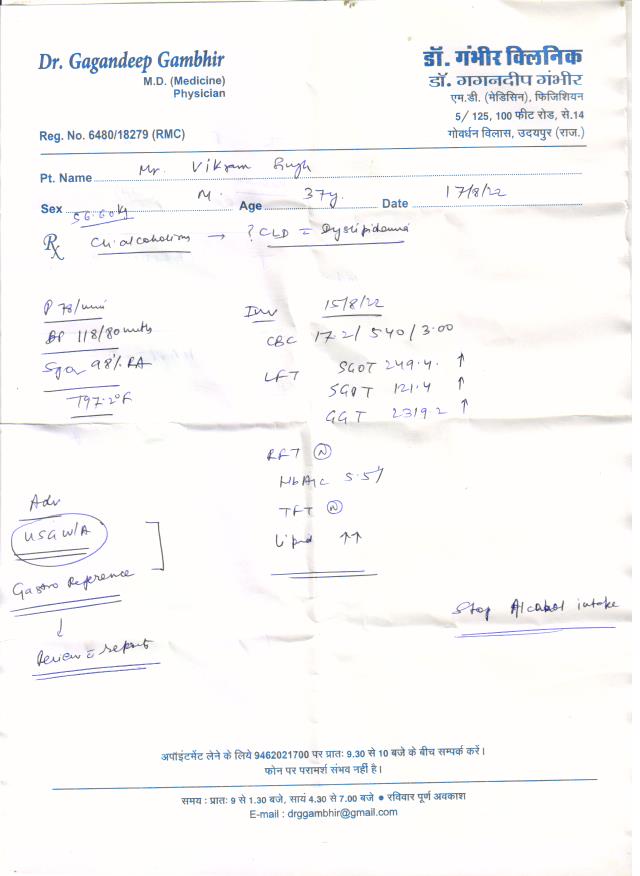 Dr. Gagandeep Gambhir
M.D. (Medicine)
Physician
Reg. No. 6480/18279 (RMC)
डॉ. गंभीर क्लिनिक
डॉ. गगनदीप गंभीर
एम.डी. (मेडिसिन), फिजिशियन
5/ 125, 100 फीट रोड, से.14
गोवर्धन विलास, उदयपुर (राज.)
Pt. Name Mr. Vikram Singh
Sex M. Age 37y. Date 17/8/22
56.60 kg
Rx Ch. alcoholism → ? CLD = Dyslipidemia
P 78/min
BP 118/80 mmHg
Spo2 98% RA
T 97.2°F
Inv 15/8/22
CBC 17.2/ 540/ 3.00
LFT SGOT 249.4. ↑
SGPT 121.4 ↑
GGT 2319.2 ↑
RFT (N)
HbA1c 5.5%
TFT (N)
Lipid ↑↑
Adv
USG W/A
Gastro Reference
↓
Review = report
Stop Alcohol intake
अपॉइंटमेंट लेने के लिये 9462021700 पर प्रातः 9.30 से 10 बजे के बीच सम्पर्क करें।
फोन पर परामर्श संभव नहीं है।
समय : प्रातः 9 से 1.30 बजे, सायं 4.30 से 7.00 बजे ● रविवार पूर्ण अवकाश
E-mail : drggambhir@gmail.com